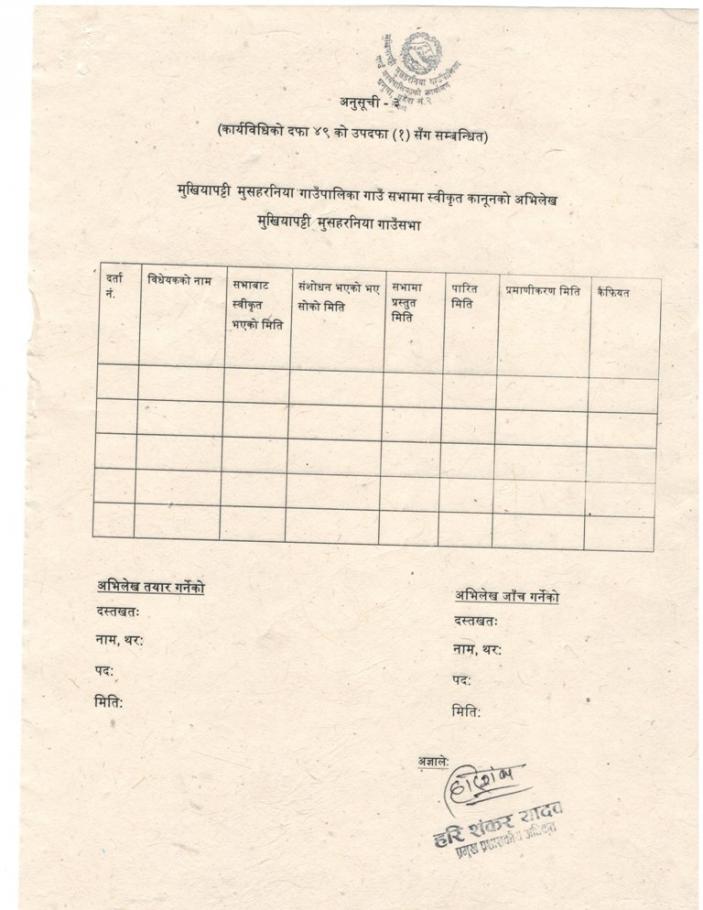 मुखियापट्टी मुसहरनिया गाउँपालिका
गाउँ कार्यपालिकाको कार्यालय
धनुषा, प्रदेश नं.२
अनुसूची - ३
(कार्यविधिको दफा ४९ को उपदफा (१) सँग सम्बन्धित)
मुखियापट्टी मुसहरनिया गाउँपालिका गाउँ सभामा स्वीकृत कानूनको अभिलेख
मुखियापट्टी मुसहरनिया गाउँसभा
दर्ता नं.
विधेयकको नाम
सभाबाट स्वीकृत भएको मिति
संशोधन भएको भए सोको मिति
सभामा प्रस्तुत मिति
पारित मिति
प्रमाणीकरण मिति
कैफियत
अभिलेख तयार गर्नेको
दस्तखतः
नाम, थर:
पद:
मिति:
अभिलेख जाँच गर्नेको
दस्तखतः
नाम, थर:
पद:
मिति:
अज्ञाले:
हरि शंकर यादव
प्रमुख प्रशासकीय अधिकृत